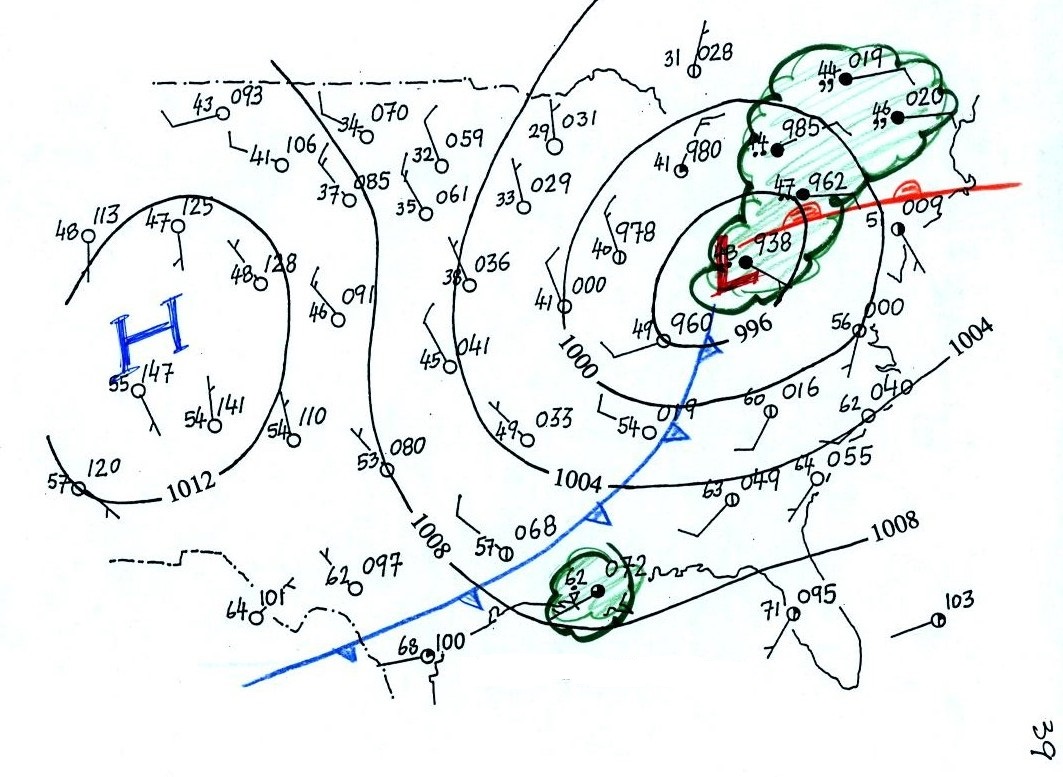 31 028
44 019
46 020
43 093
34 070
29 031
44 985
41 106
32 059
41 980
37 085
35 061
33 029
47 962
48 113
47 125
40 978
5 009
48 128
38 036
43 938
46 091
41 000
H
L
49 960 996
56 000
1000
1004
45 041
55 147
54 141
54 110
49 033
54 019
60 016
62 040
53 080
57 120
1012
1004
63 049
64 055
1008
1008
57 068
62 097
62 072
64 101
68 100
71 095
103
39